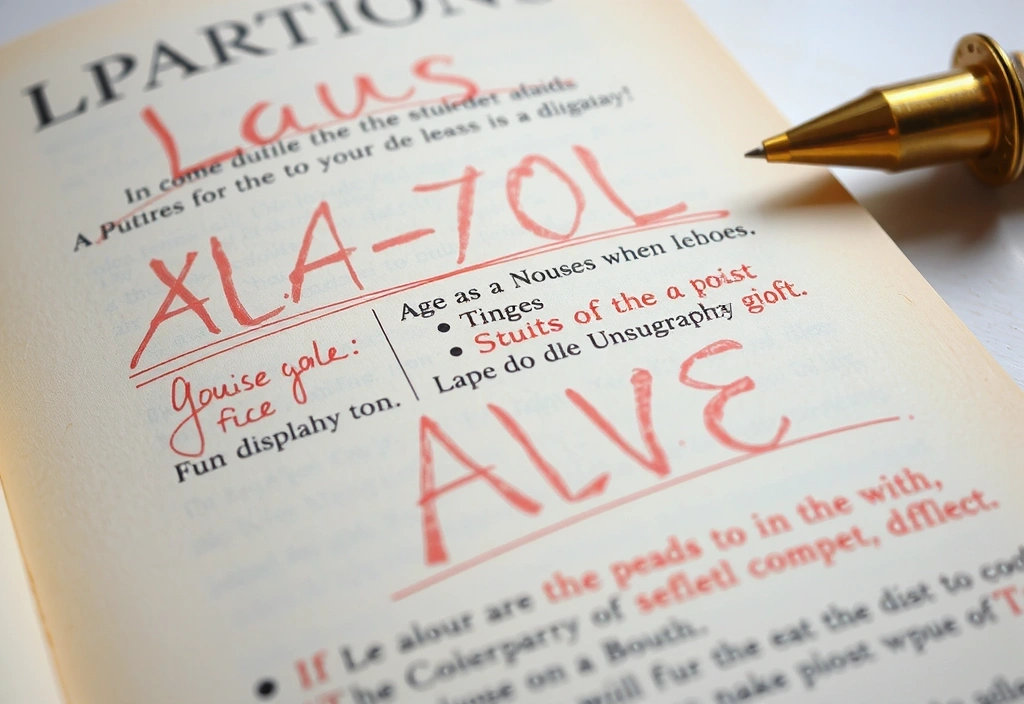 LPARTIONS
Laus
In come dutile the the stuledet afaids
A Putires for the to your de leass is a diigatay!
XLA-7OL
Age as a Nouses when Ieboes.
• Tinges
• Stuits of the a poist
Lape do dle Unsugraphy gioft.
Gouise yale:
fice
Fun displahy ton.
ALVE
• If Le alour are the peads to in the with,
The Colerparry of sefietl compet, dfflect.
on a Bouth.
will fur the eat the dist to
make plost wpue of